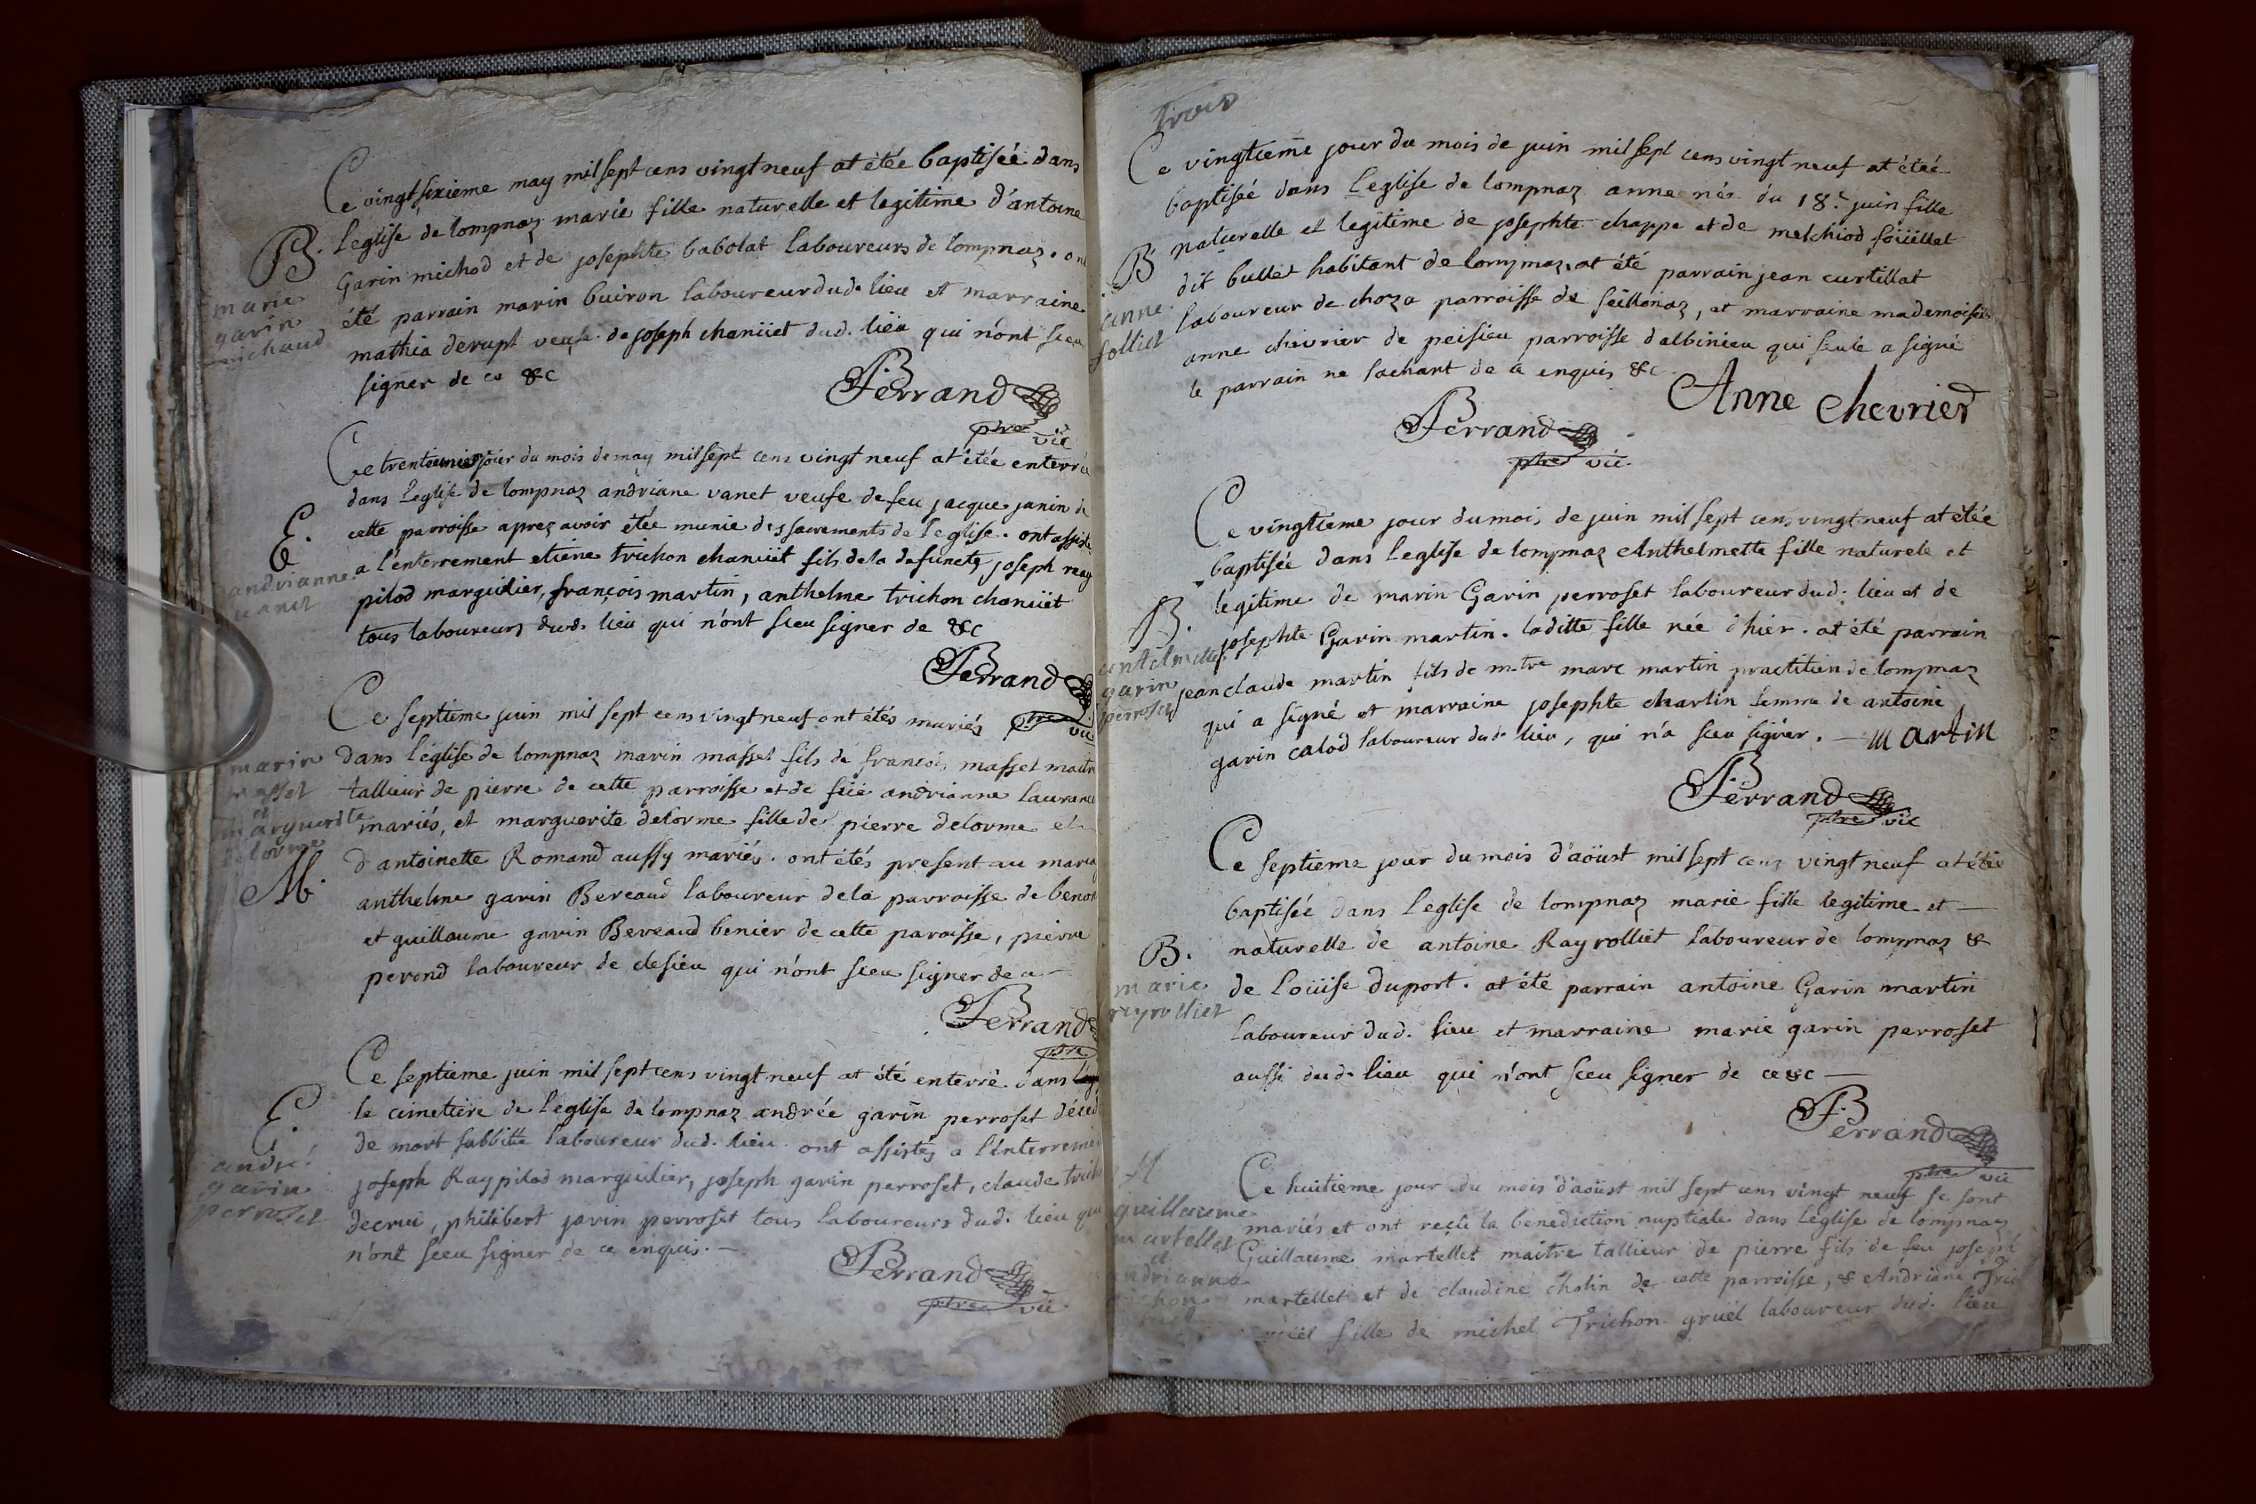 Ce vingt sixieme may mil sept cens vingt neuf at étée baptisée dans
B. l'eglise de lompnaz marie fille naturelle et legitime d'antoine
marie garin michaud
Garin michod et de josephte babolat laboureurs de lompnaz. ont
été parrain marin buiron laboureur dud. lieu et marraine
mathia derupt veufe de joseph chaniüet dud. lieu qui n'ont sceu
signer de ce &c
Ferrand
ptre vic
Ce trente jour du mois de may mil sept cens vingt neuf at étée enterrée
dans l'eglise de lompnaz andriane vanet veufe de feu jacque janin de
E. cette parroisse aprez avoir étée munie des sacrements de l'eglise. ont assisté
andrianne vanet
a l'enterrement etiene trichon chaniüet fils de la defuncte, joseph ray
pilod margulier, françois martin, anthelme trichon chaniüet
tous laboureurs dud. lieu qui n'ont sceu signer de &c
Ferrand
ptre vic
Ce septieme juin mil sept cens vingt neuf ont étés mariés
marin masset et marguerite delorme
dans l'église de lompnaz marin masset fils de françois masset maitre
tallieur de pierre de cette parroisse et de füe andrianne laurance
mariés, et marguerite delorme fille de pierre delorme et
M. d'antoinette Romand aussy mariés. ont étés present au mariag
anthelme garin Bereaud laboureur de la parroisse de benon
et guillaume garin Bereaud benier de cette paroisse, pierre
perond laboureur de clesieu qui n'ont sceu signer de ce
Ferrand
ptre
Ce septieme juin mil sept cens vingt neuf at été enterré dans
E. le cimetiere de l'eglise de lompnaz andrée garin perroset déced
andré garin perroset
de mort subbitte laboureur dud. lieu. ont assistés a l'enterreme
joseph Ray pilod margulier, joseph garin perroset, claude trich
decrui, philibert garin perroset tous laboureurs dud. lieu qui
n'ont sceu signer de ce enquis.
Ferrand
ptre vic
trois
Ce vingtieme jour du mois de juin mil sept cens vingt neuf at étée
baptisée dans l'eglise de lompnaz anne née du 18e juin fille
B naturelle et legitime de josephte chappe et de melchiod foüillet
anne folliet
dit bullet habitant de lompnaz. at été parrain jean curtillat
laboureur de choza parroisse de seillonaz, et marraine mademoiselle
anne chevrier de peisieu parroisse d'albinieu qui seule a signé
le parrain ne sachant de ce enquis &c
Anne Chevrier
Ferrand
ptre vic.
Ce vingtieme jour du mois de juin mil sept cens vingt neuf at étée
baptisée dans l'eglise de lompnaz Anthelmette fille naturele et
B. legitime de marin Garin perroset laboureur dud. lieu et de
anthelmette garin perroset
josephte Garin martin. laditte fille née d'hier. at été parrain
jean claude martin fils de mtre marc martin practitien de lompnaz
qui a signé et marraine josephte charlin femme de antoine
garin calod laboureur dud. lieu, qui n'a sceu signer. — martin
Ferrand
ptre vic
Ce septieme jour du mois d'aoüst mil sept cens vingt neuf at étée
baptisée dans l'eglise de lompnaz marie fille legitime et
B. naturelle de antoine Ray rolliet laboureur de lompnaz &
marie reyrolliet
de loüise duport. at été parrain antoine Garin martin
laboureur dud. lieu et marraine marie garin perroset
aussi dud. lieu qui n'ont sceu signer de ce &c
Ferrand
ptre vic
Ce huitieme jour du mois d'aoüst mil sept cens vingt neuf se sont
guillaeume martellet et andrianne
mariés et ont reçü la benediction nuptiale dans l'église de lompnaz
Guillaume martellet maitre tallieur de pierre fils de feu joseph
martellet et de claudine cholin de cette parroisse, & Andriane Tric
fille de michel Trichon grüel laboureur dud. lieu